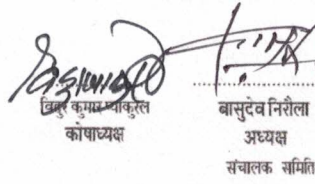 विदुर कुमार प्याकुरेल
कोषाध्यक्ष
बासुदेव निरौला
अध्यक्ष
संचालक समिति